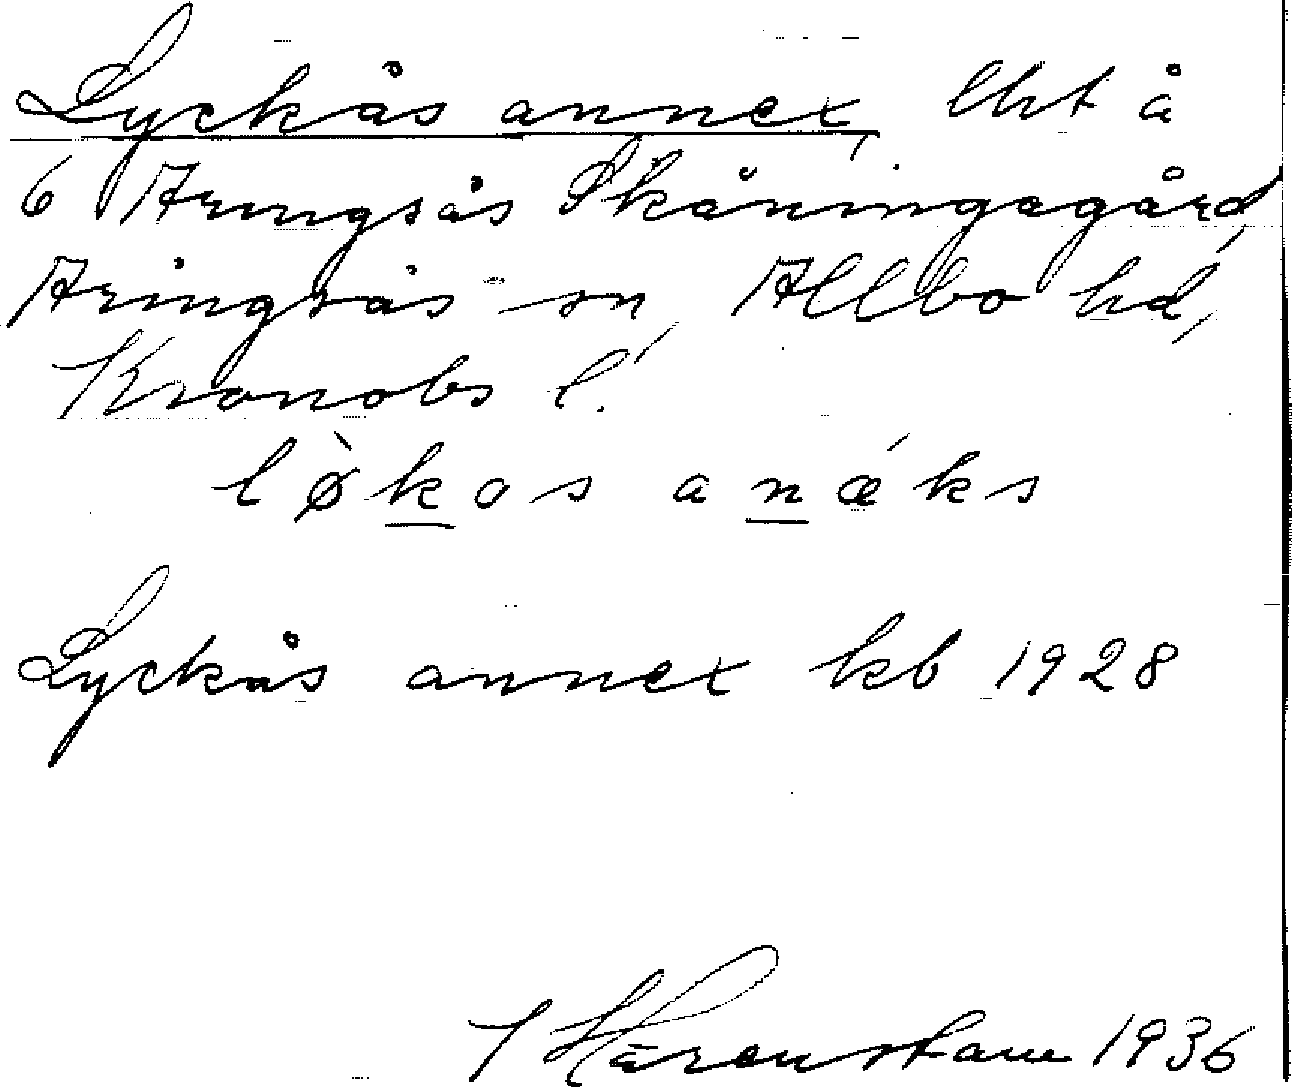 Lyckås annex, lht å
6 Aringsås Skåningagård,
Aringsås sn, Allbo hd,
Kronobs l.
lø̀kas anǽks
Lyckås annex kb 1928
J Härenstam 1936